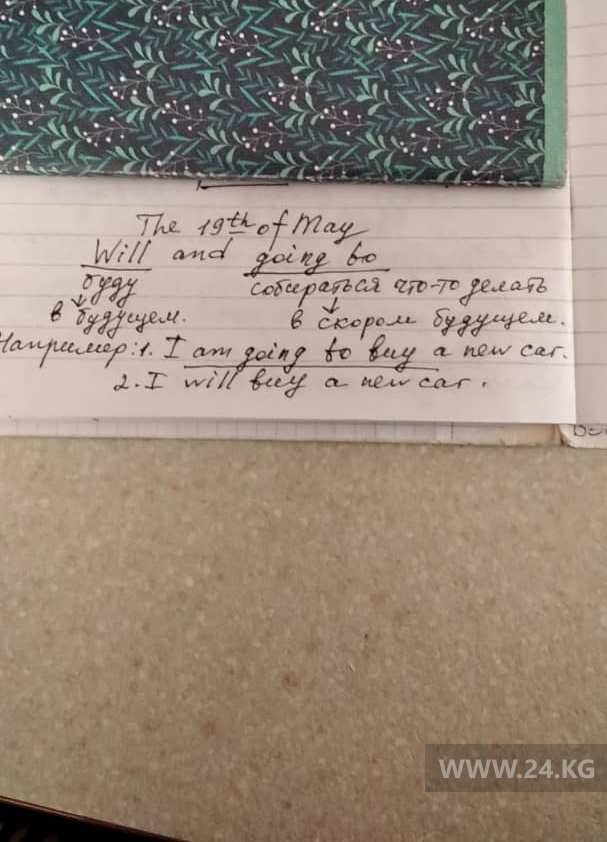 The 19th of May
Will and going to
буду собираться что-то делать
в будущем. в скором будущем.
Например: 1. I am going to buy a new car.
2. I will buy a new car.
WWW.24.KG